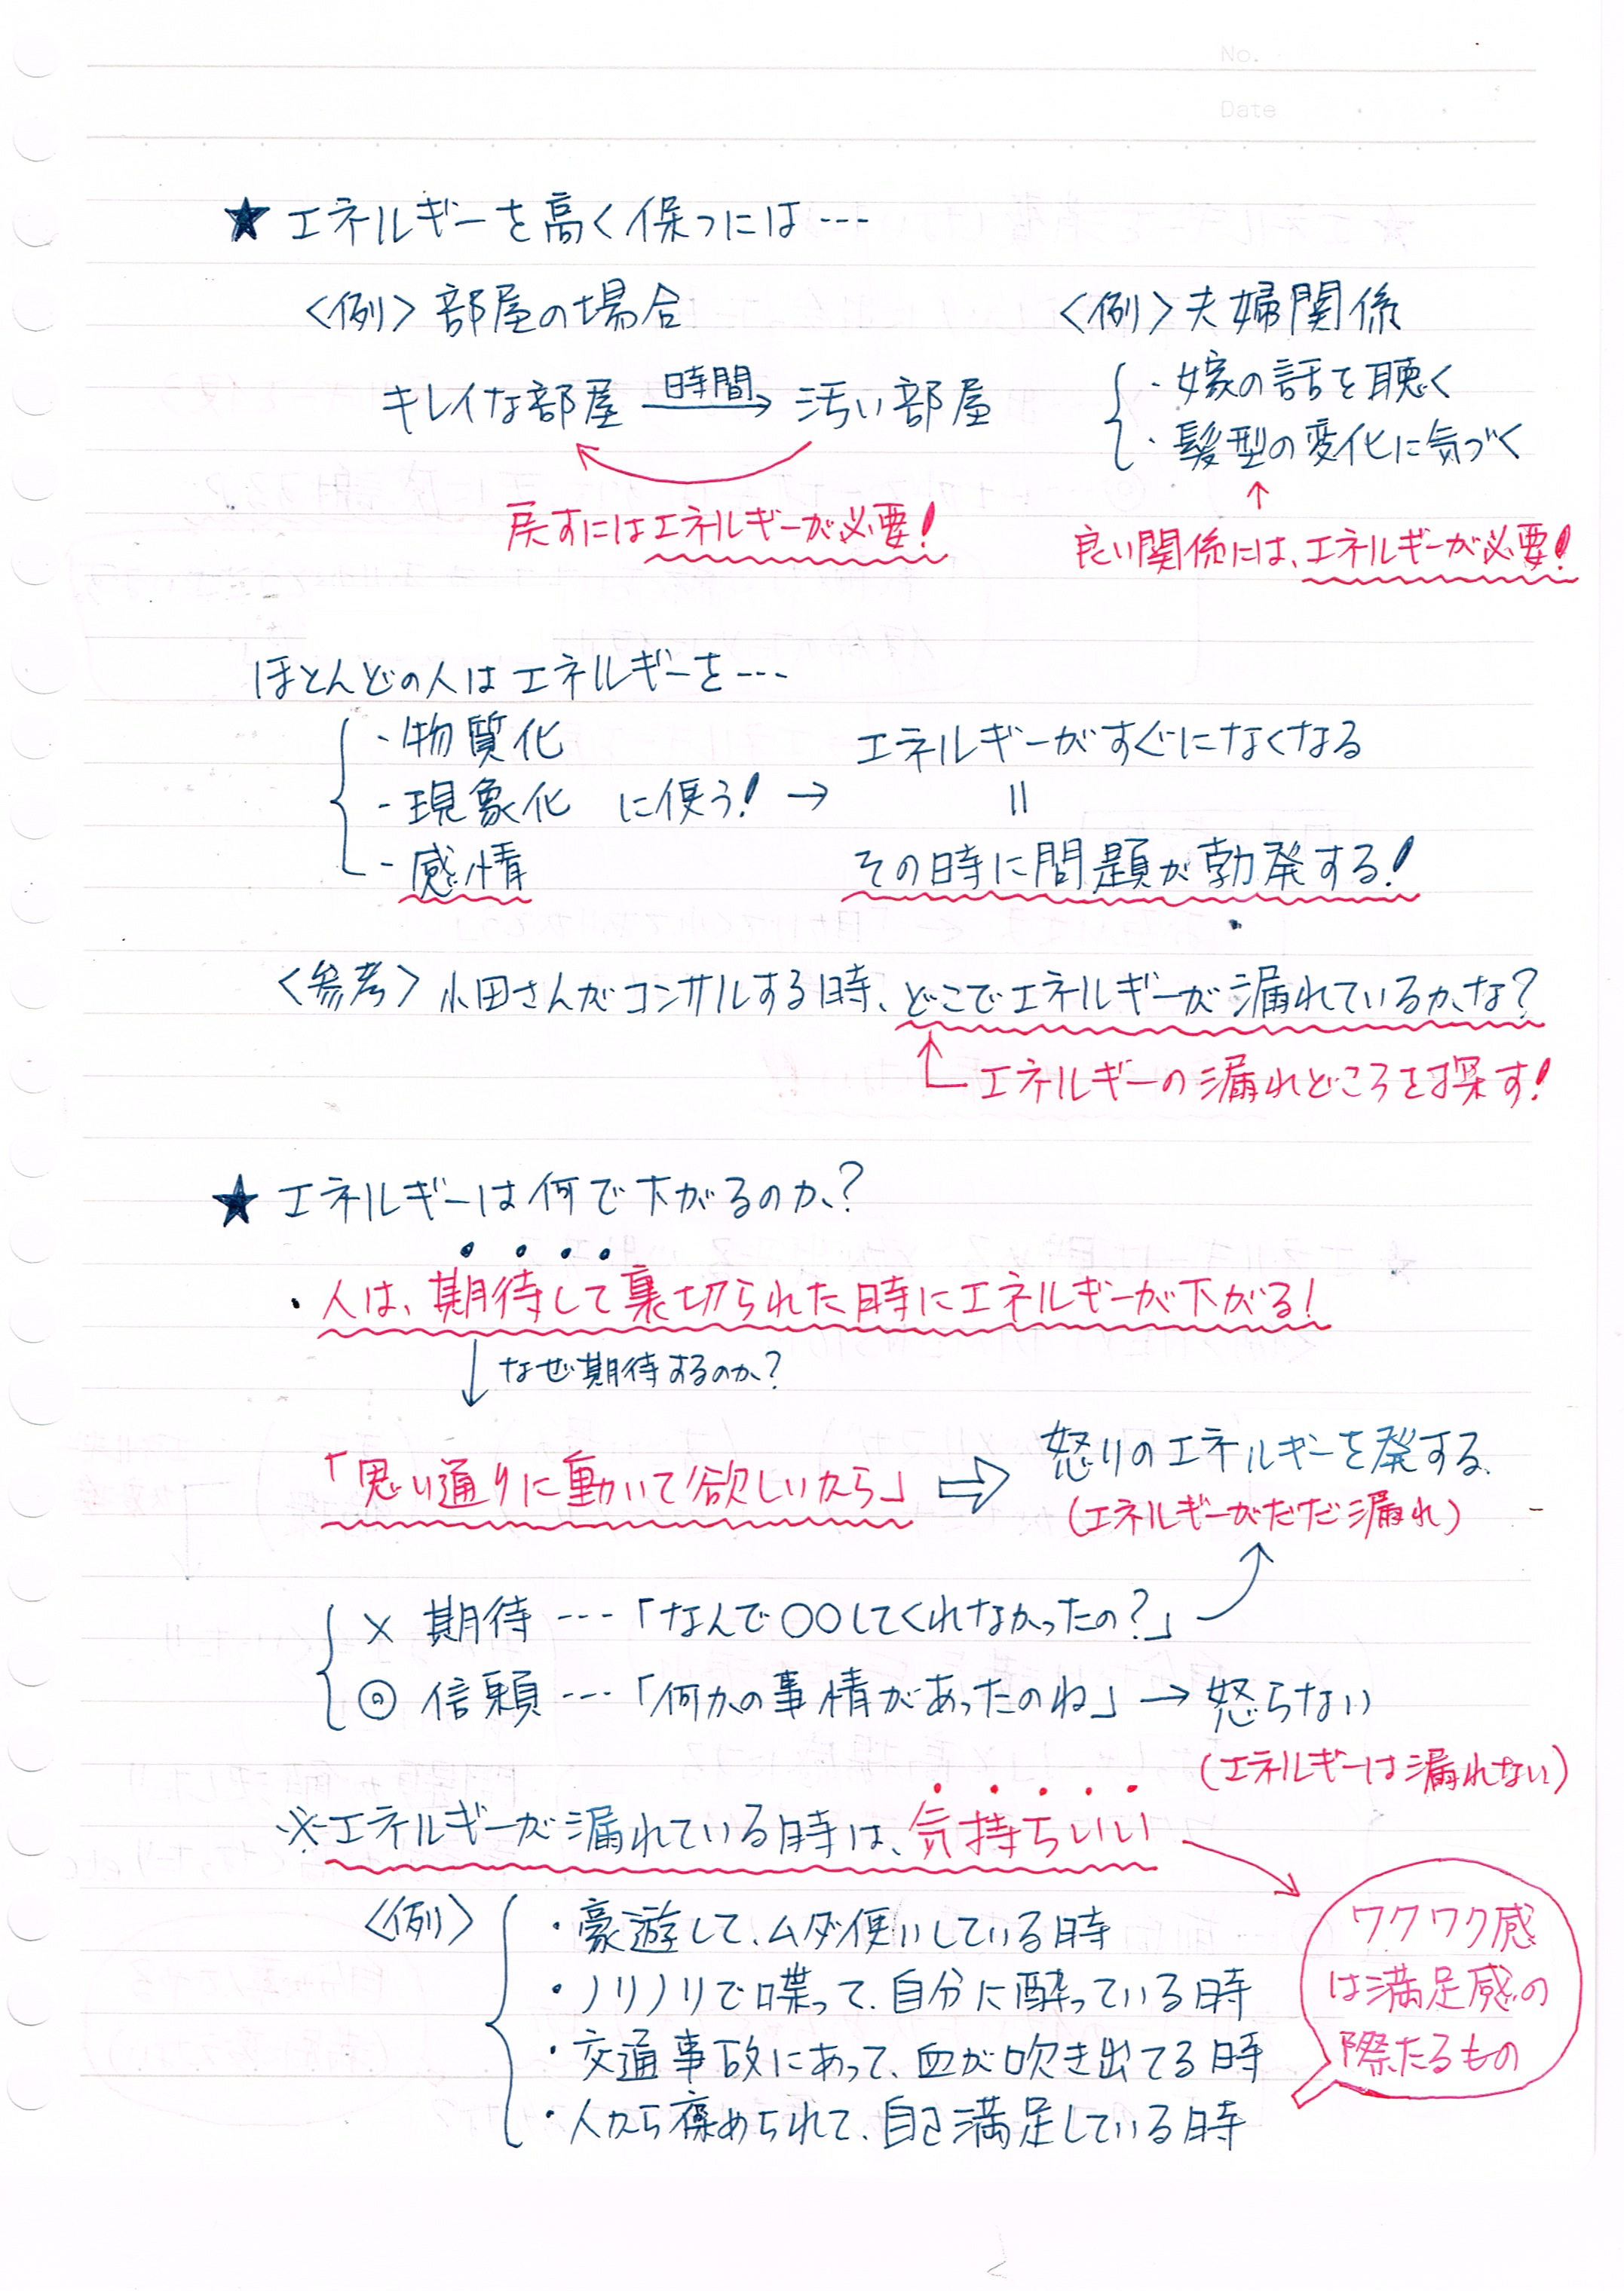 No.
Date
★エネルギーを高く保つには…
〈例〉部屋の場合
キレイな部屋 時間→ 汚い部屋
戻すにはエネルギーが必要!
〈例〉夫婦関係
・嫁の話を聴く
・髪型の変化に気づく
↑
良い関係には、エネルギーが必要!
ほとんどの人はエネルギーを…
・物質化
・現象化 に使う!→
・感情
エネルギーがすぐになくなる
=
その時に問題が勃発する!
〈参考〉小田さんがコンサルする時、どこでエネルギーが漏れているかな?
エネルギーの漏れどころを探す!
★エネルギーは何で下がるのか?
・人は、期待して裏切られた時にエネルギーが下がる!
↓なぜ期待するのか?
「思い通りに動いて欲しいから」⇨ 怒りのエネルギーを発する.
(エネルギーがだだ漏れ)
× 期待 …「なんで〇〇してくれなかったの?」
◎ 信頼 …「何かの事情があったのね」→ 怒らない
(エネルギーは漏れない)
※エネルギーが漏れている時は、気持ちいい
〈例〉
・豪遊して、ムダ使いしている時
・ノリノリで喋って、自分に酔っている時
・交通事故にあって、血が吹き出てる時
・人から褒められて、自己満足している時
ワクワク感
は満足感の
際たるもの